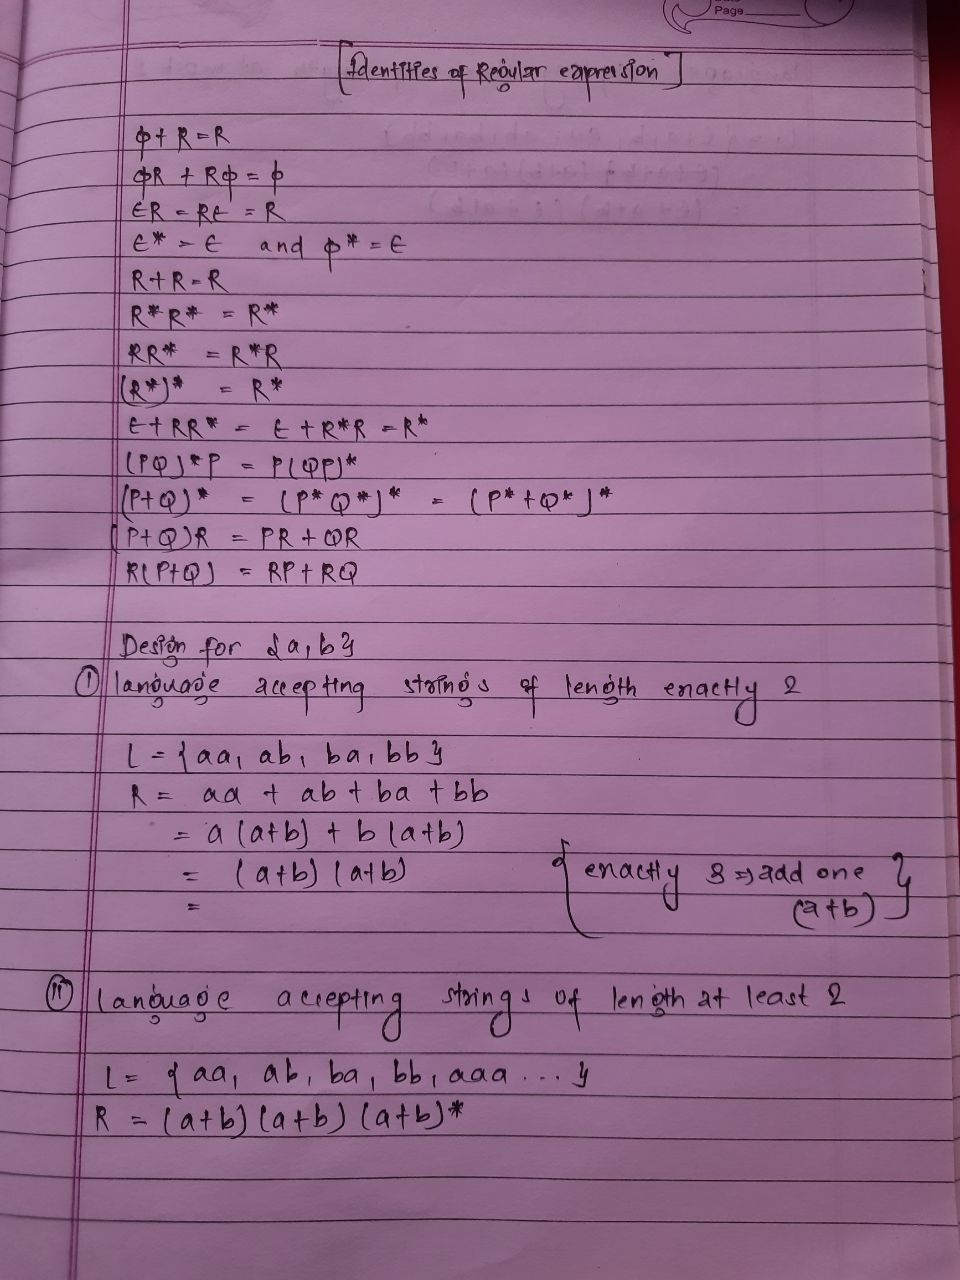 Page
[Identities of Regular expression]
ϕ + R = R
ϕR + Rϕ = ϕ
ЄR = RЄ = R
Є* = Є and ϕ* = Є
R + R = R
R*R* = R*
RR* = R*R
(R*)* = R*
Є + RR* = Є + R*R = R*
(PQ)*P = P(QP)*
(P+Q)* = (P*Q*)* = (P* + Q*)*
(P+Q)R = PR + QR
R(P+Q) = RP + RQ
Design for {a, b}
(i) language accepting strings of length exactly 2
L = {aa, ab, ba, bb}
R = aa + ab + ba + bb
= a(a+b) + b(a+b)
= (a+b)(a+b)
=
{exactly 3 ⇒ add one
(a+b)}
(ii) language accepting strings of length at least 2
L = {aa, ab, ba, bb, aaa ... }
R = (a+b)(a+b)(a+b)*